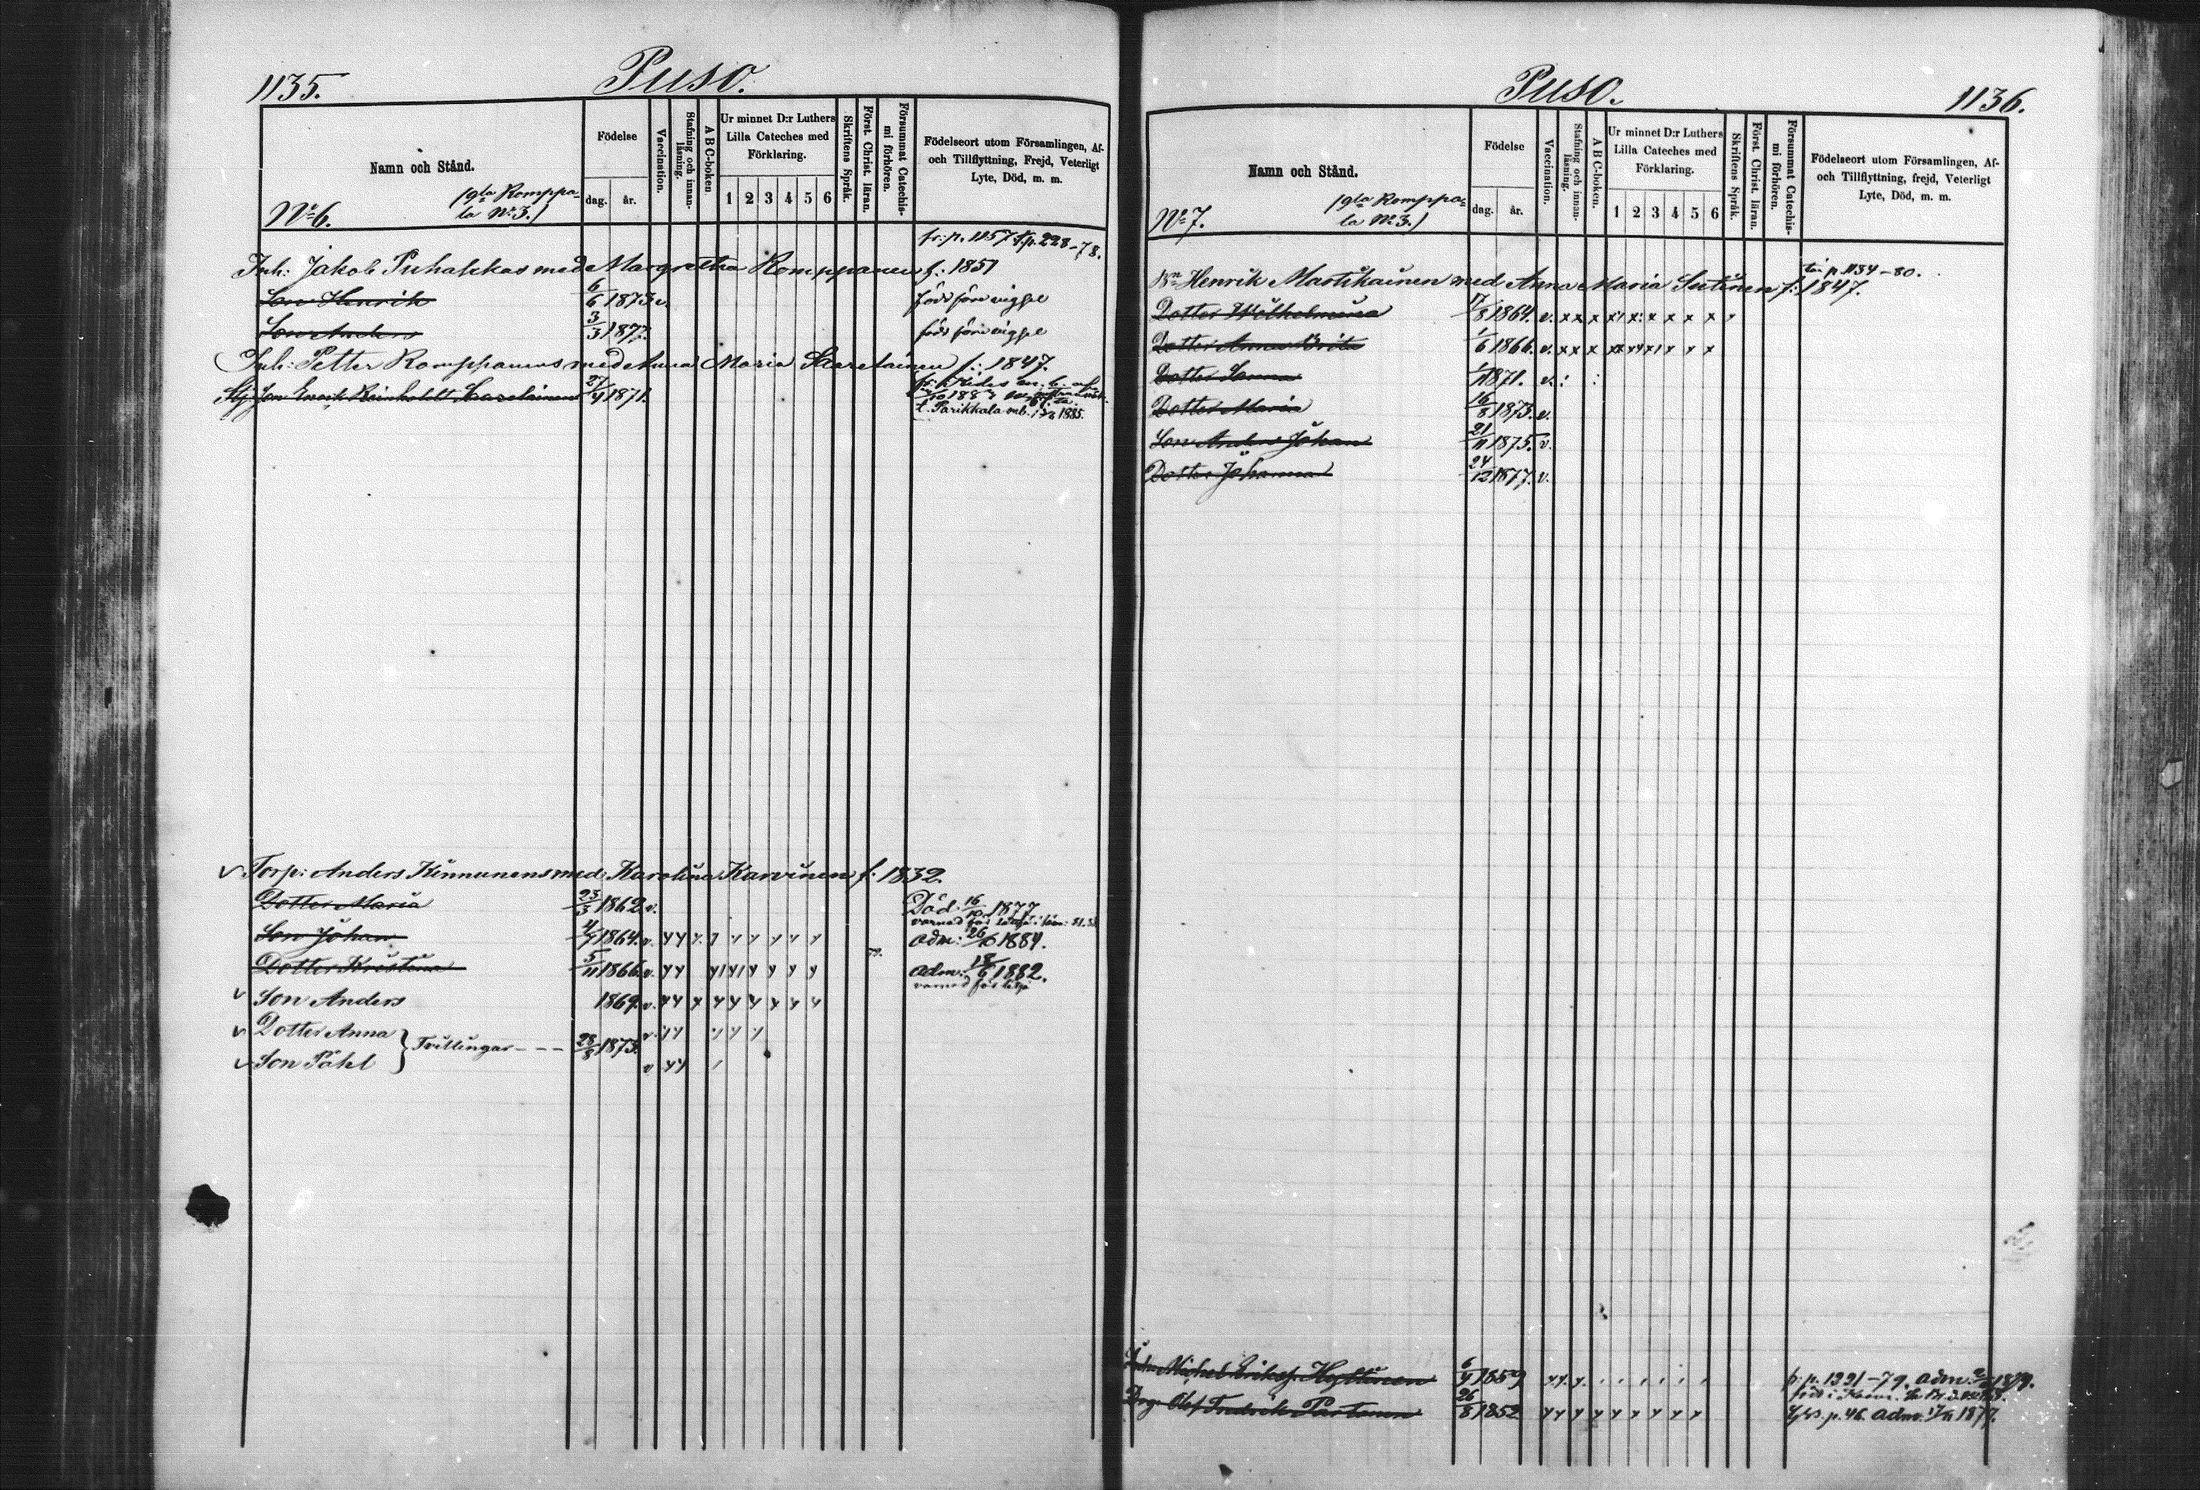 1135.
Puso.
Namn och Stånd.
Födelse
dag. år.
Vaccination.
Stafning och innanläsning.
ABC-boken
Ur minnet D:r Luthers
Lilla Cateches med
Förklaring.
1 2 3 4 5 6
Skriftens Språk.
Först. Christ. läran.
Försummat Catechismi förhören.
Födelseort utom Församlingen, Af-
och Tillflyttning, Frejd, Veterligt
Lyte, Död, m. m.
No 6.
(gla Romppa-
la No 3.)
fr: p. 1157 t. p. 228-78.
Inh: Jakob Puhakkas med Margretha Romppanen f: 1851
Son Henrik 6/6 1873. v. född före vigsel
Son Anders 3/3 1877. född före vigsel
Inh: Petter Romppanens med Anna Maria Karelainen f: 1847.
Son Enrik Reinholdt Karelainen 27/4 1871.
t. Parikkala 1885.
v Torp: Anders Kinnunens med Karolina Karvinen f. 1832.
Dotter Maria 23/3 1862 v. Död: 16/10 1877
Son Johan 4/7 1864. v. adm: 26/6 1884.
Dotter Kristina 5/11 1866. v. adm: 18/6 1882.
v Son Anders 1869. v.
v Dotter Anna
v Son Påhl } Tvillingar --- 28/8 1873. v.
1136.
Puso.
Namn och Stånd.
Födelse
dag. år.
Vaccination.
Stafning och innanläsning.
ABC-boken.
Ur minnet D:r Luthers
Lilla Cateches med
Förklaring.
1 2 3 4 5 6
Skriftens Språk.
Först. Christ. läran.
Försummat Catechismi förhören.
Födelseort utom Församlingen, Af-
och Tillflyttning, frejd, Veterligt
Lyte, Död, m. m.
No 7.
(gla Romppa-
la No 3.)
p. 1134-80.
Henrik Martikainen med Anna Maria Sutinen f: 1847.
Dotter Wilhelmina 17/8 1864. v. x x x x x x x x x
Dotter Anna Brita 1/6 1866. v.
Dotter Sanna 1871. v.
Dotter Maria 16/8 1873. v.
Son Anders Johan 21/11 1875. v.
Dotter Johanna 24/12 1877. v.
Michel Eriksf. Hyttinen 6/4 1859 fr: p. 1221-79. adm. 1879.
Drg: Olof Fredrik Partanen 26/8 1852 p. 46. adm. 17/11 1877.